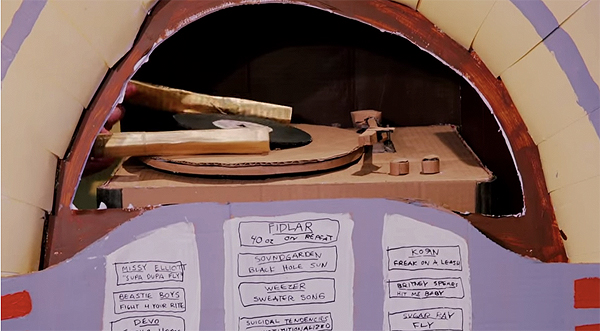 MISSY ELLIOTT
"SUPA DUPA FLY"
BEASTIE BOYS
FIGHT 4 YOUR RITE
DEVO
FIDLAR
40 oz ON REPEAT
SOUNDGARDEN
BLACK HOLE SUN
WEEZER
SWEATER SONG
SUICIDAL TENDENCIES
INSTITUTIONALIZED
KOЯN
FREAK ON A LEASH
BRITNEY SPEARS
HIT ME BABY
SUGAR RAY
FLY